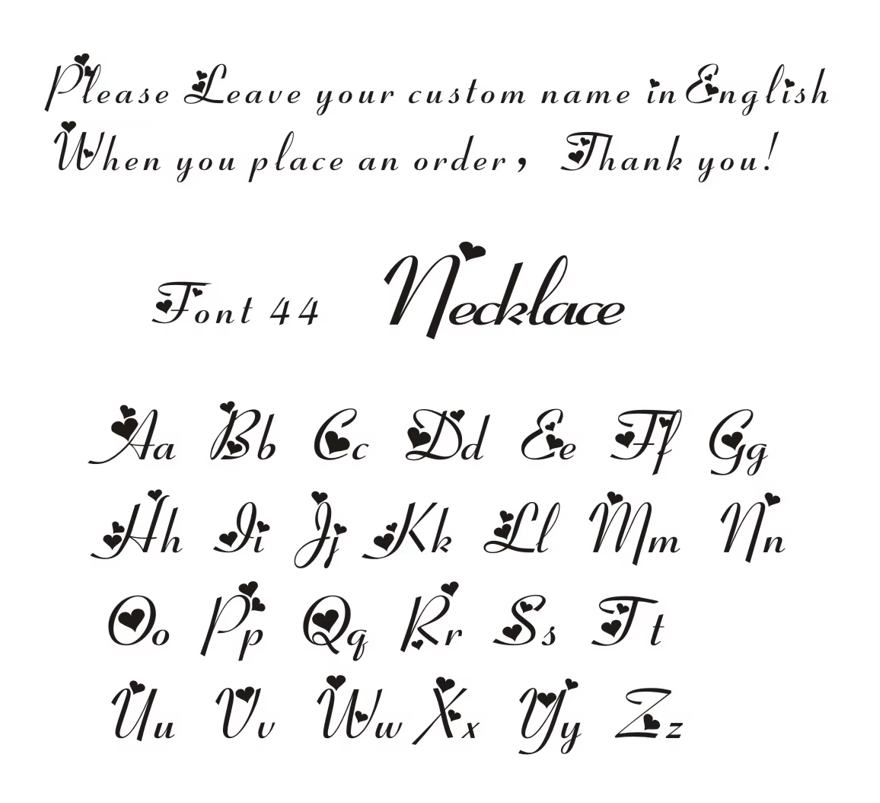 Please Leave your custom name in English
When you place an order, Thank you!
Font 44 Necklace
Aa Bb Cc Dd Ee Ff Gg
Hh Ii Jj Kk Ll Mm Nn
Oo Pp Qq Rr Ss Tt
Uu Vv Ww Xx Yy Zz